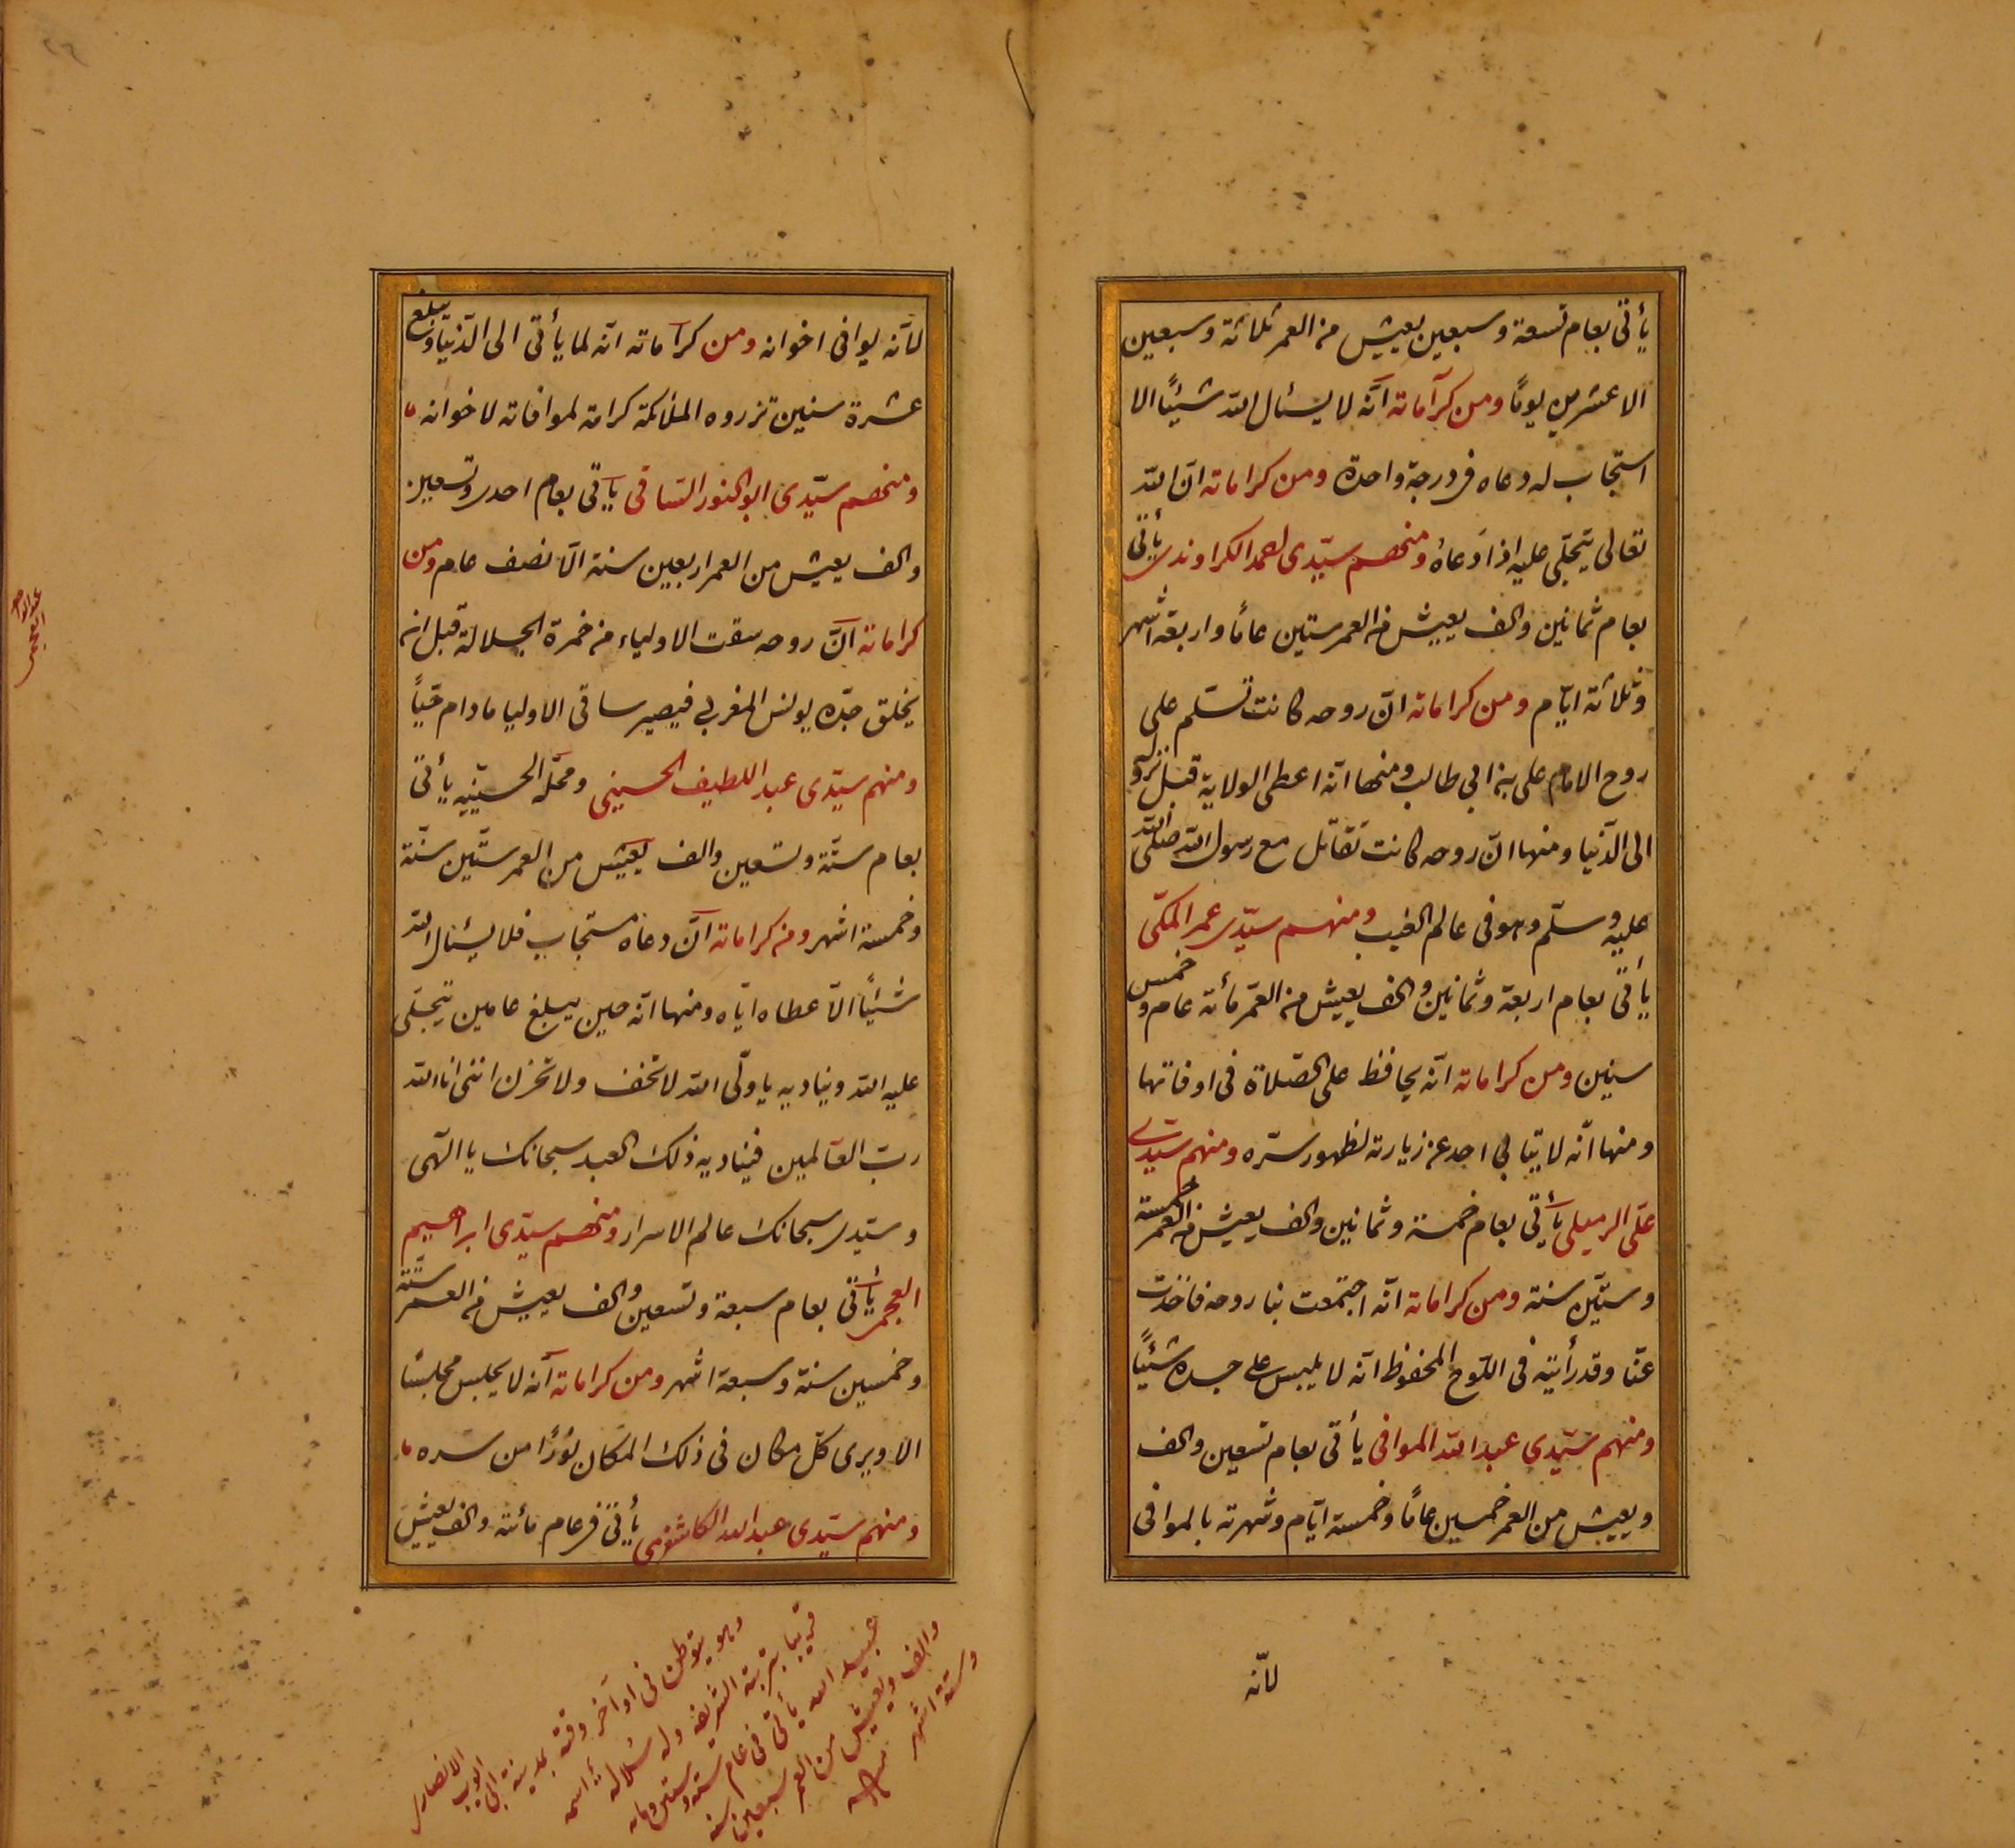 يأتى بعام تسعة وسبعين يعيش من العمر ثلاثة وسبعين
الا عشرين يومًا ومن كراماته انّه لا يسئال الله شيئًا الا
استجاب له دعاه فى درجة واحدة ومن كراماته انّ الله
تعالى يتجلّى عليه اذا دعاهُ ومنهم سيّدى احمد الكراوندى يأتى
بعام ثمانين والف يعيش من العمر ستين عامًا واربعة اشهر
وثلاثة ايّام ومن كراماته انّ روحه كانت تسلّم على
روح الامام على بن ابي طالب ومنها انّه اعطى الولاية قبل نزوله
الى الدّنيا ومنها انّ روحه كانت تقاتل مع رسول الله صلى الله
عليه وسلّم وهو فى عالم الغيب ومنهم سيّدى عمر المكّى
يأتى بعام اربعة وثمانين والف يعيش من العمر مأته عام وخمس
سنين ومن كراماته انّه يحافظ على الصّلاة فى اوقاتها
ومنها انّه لا يتابي احد عن زيارته لظهور سرّه ومنهم سيّدى
على الرميلى يأتى بعام خمسة وثمانين والف يعيش من العمر خمسة
وستّين سنة ومن كراماته انّه اجتمعت بنا روحه فاخذت
عنّا وقد رأيته فى اللّوح المحفوظ انّه لا يلبس على جسده شيئًا
ومنهم سيّدى عبد الله الموافى يأتى بعام تسعين والف
ويعيش من العمر خمسين عامًا وخمسة ايّام وشهرته بالموافى
لانّه
لانّه يوافى اخوانه ومن كراماته انّه لما يأتى الى الدّنيا ويبلغ
عشرة سنين تزروه الملائكة كرامة لموافاته لاخوانه
ومنهم سيّدى ابو النور السّاقى يأتى بعام احدى وتسعين
والف يعيش من العمر اربعين سنة الّا نصف عام ومن
كراماته انّ روحه سقت الاولياء من خمرة الجلالة قبل ان
يخلق جدّه يونس المغربي فيصير ساقى الاوليا مادام حيّاً
ومنهم سيّدى عبد اللطيف الحسينى ومحلّه الحسينيّه يأتى
بعام ستّة وتسعين والف يعيش من العمر ستّين سنّة
وخمسة اشهر ومن كراماته انّ دعاه مستجاب فلا يسئال الله
شيئًا الّا عطاه ايّاه ومنها انّه حين يبلغ عامين يتجلّى
عليه الله ويناديه يا ولّى الله لا تخف ولا تحزن اننى انا الله
ربّ العالمين فيناديه ذلك العبد سبحانك يا الٓهى
وسيّدى سبحانك عالم الاسرار ومنهم سيّدى ابراهيم
العجمى يأتى بعام سبعة وتسعين والف يعيش من العمر ستّة
وخمسين سنة وسبعة اشهر ومن كراماته انّه لا يجلس مجلسًا
الا ويرى كلّ مكان فى ذلك المكان نورًا من سره
ومنهم سيّدى عبد الله الكاشغرى يأتى فى عام مائة والف يعيش
وهو يتوطن فى اواخر وقته بمدينة ابى ايوب الانصارى
قريبا بتربة الشريفه وله سلاله اسمه
عبيد الله يأتى فى عام ستة وستين ومائه
والف ويعيش من العمر سبعين سنه
وستة اشهر